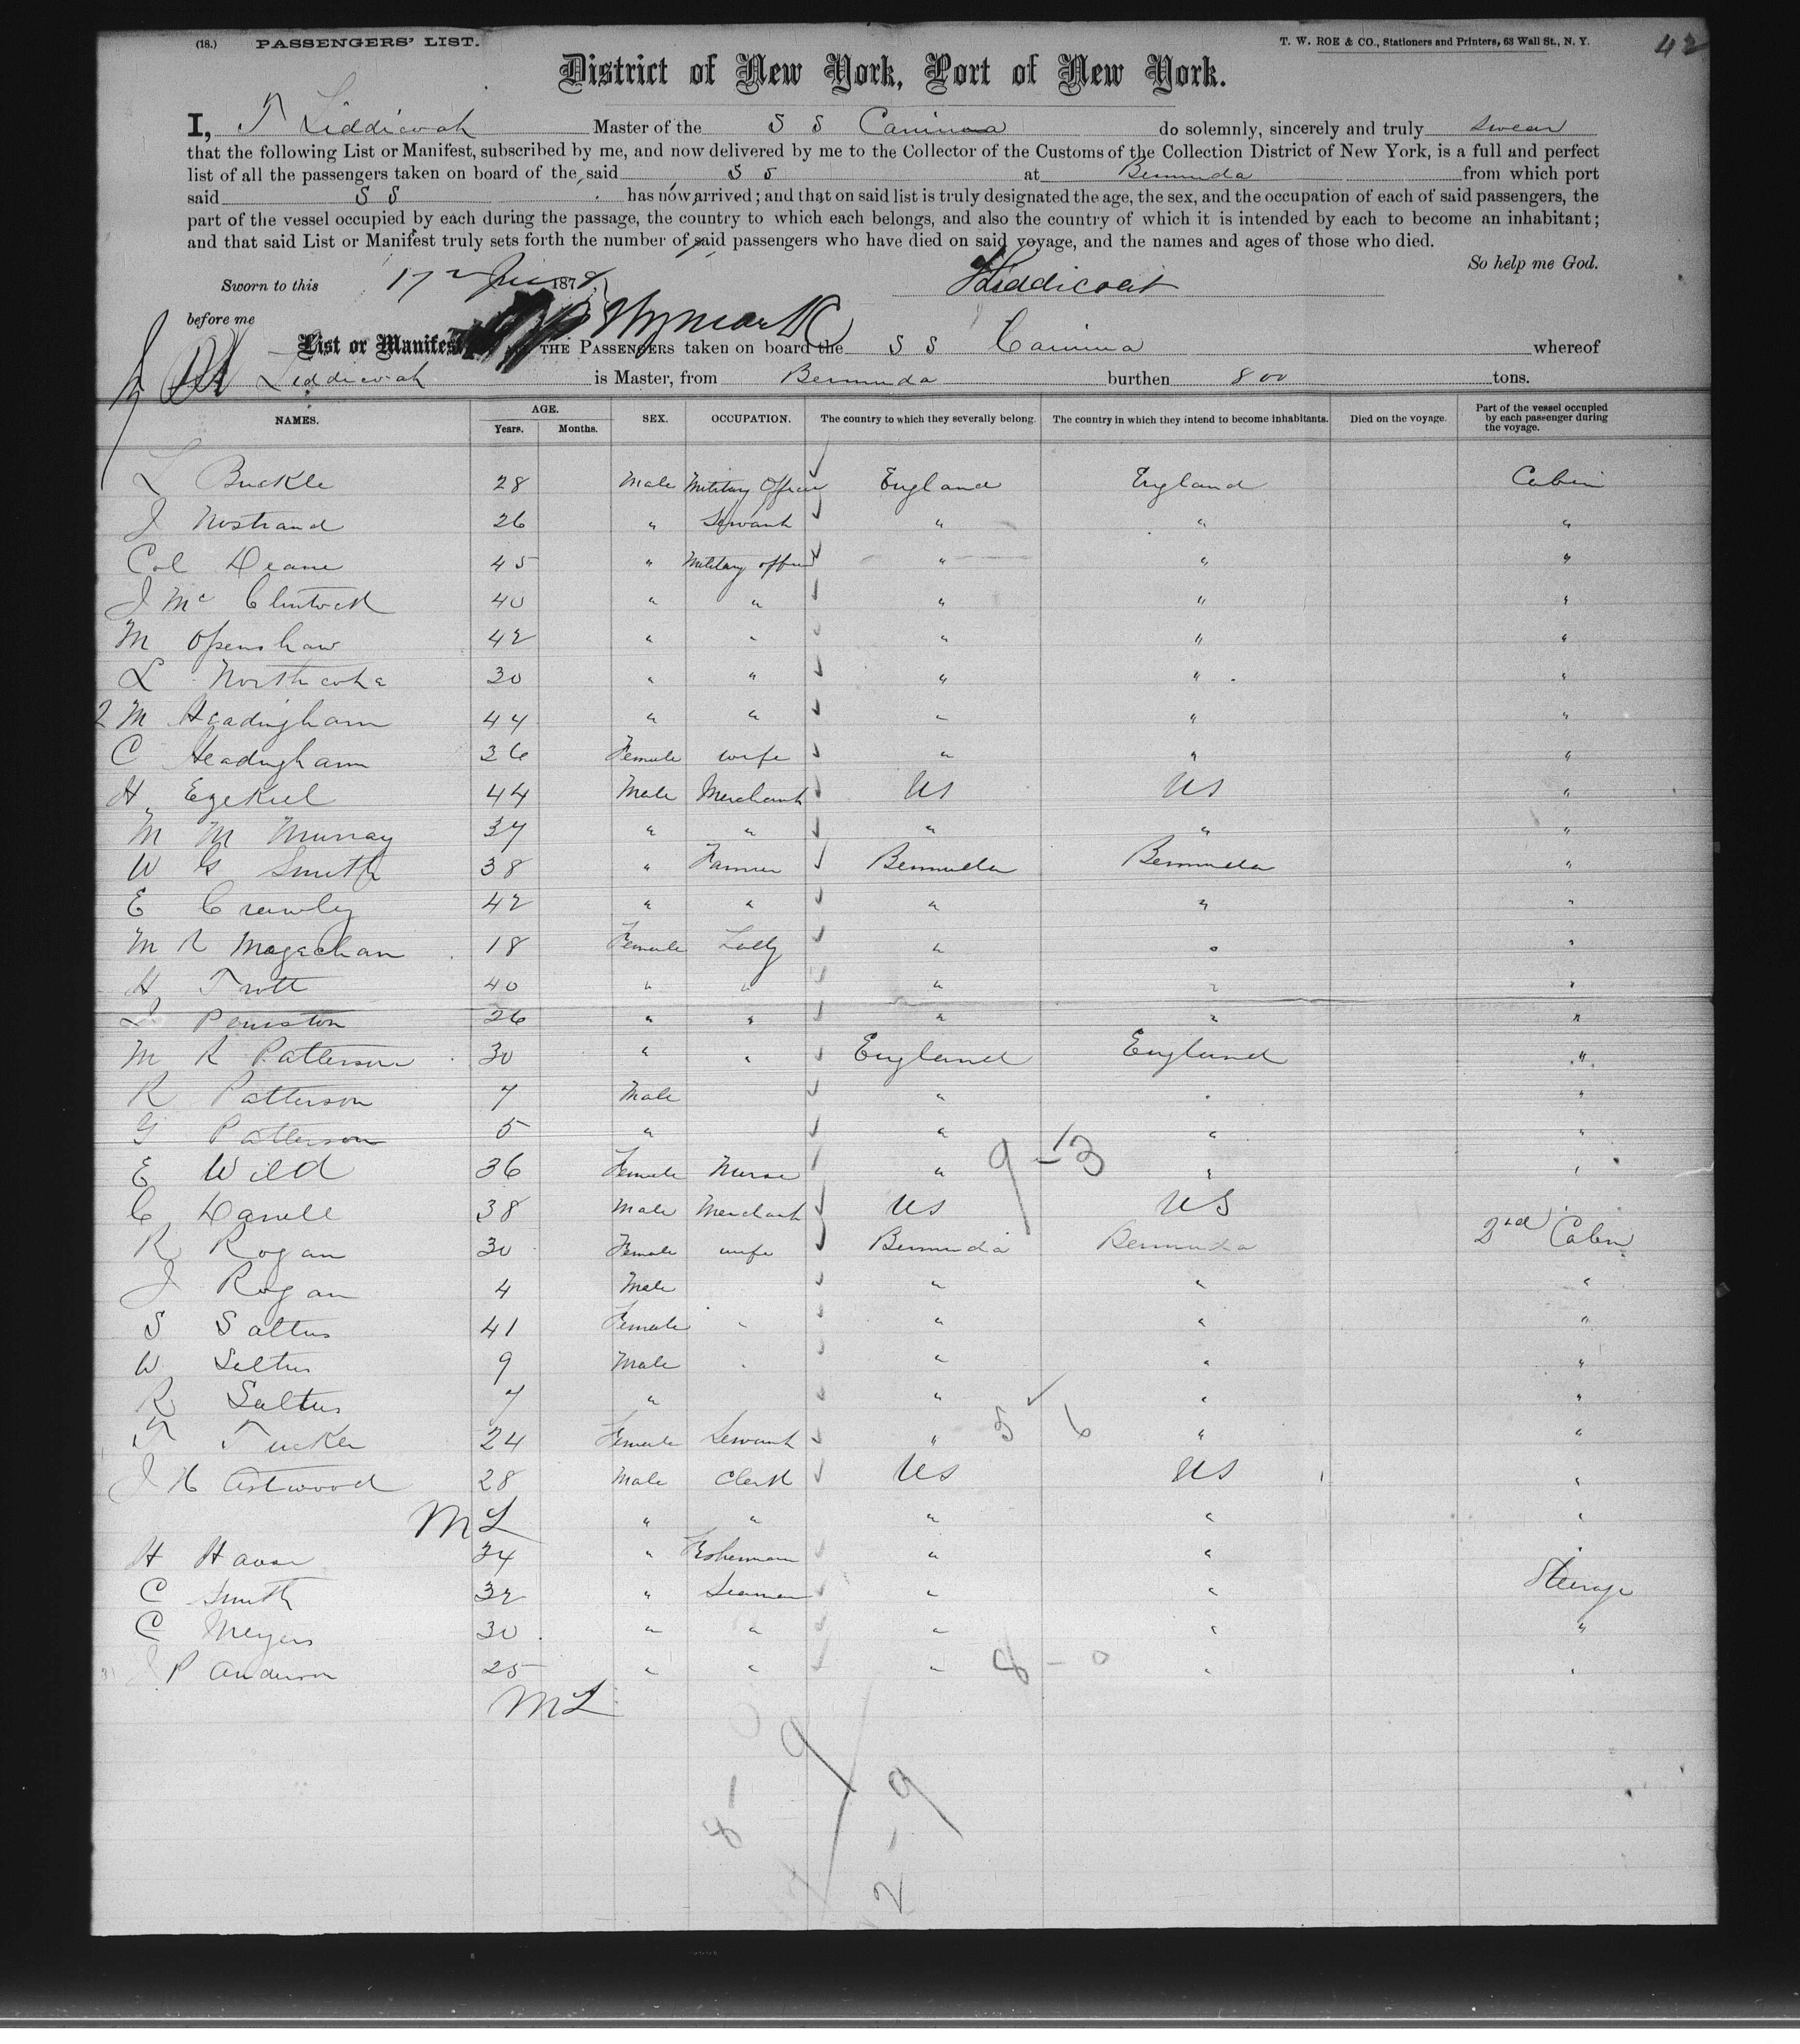 (18.) PASSENGERS' LIST. T. W. ROE & CO., Stationers and Printers, 63 Wall St., N. Y. 42
District of New York, Port of New York.
I, T Liddicoat Master of the S S Canima do solemnly, sincerely and truly swear
that the following List or Manifest, subscribed by me, and now delivered by me to the Collector of the Customs of the Collection District of New York, is a full and perfect
list of all the passengers taken on board of the said S S at Bermuda from which port
said S S has now arrived; and that on said list is truly designated the age, the sex, and the occupation of each of said passengers, the
part of the vessel occupied by each during the passage, the country to which each belongs, and also the country of which it is intended by each to become an inhabitant;
and that said List or Manifest truly sets forth the number of said passengers who have died on said voyage, and the names and ages of those who died.
So help me God.
Sworn to this 17 1878 Liddicoat
before me
List or Manifest THE PASSENGERS taken on board the S S Canima whereof
Liddicoat is Master, from Bermuda burthen 800 tons.
NAMES. AGE. Years. Months. SEX. OCCUPATION. The country to which they severally belong. The country in which they intend to become inhabitants. Died on the voyage. Part of the vessel occupied by each passenger during the voyage.
L Buckle 28 Male Military Officer England England Cabin
J Nostrand 26 " Servant " " "
Col Deane 45 " Military officer " " "
J Mc Clintock 40 " " " " "
M Openshaw 42 " " " " "
L Northcote 30 " " " " "
2 M Headingham 44 " " " " "
C Headingham 36 Female wife " " "
H Ezekiel 44 Male Merchant US US "
M M Murray 37 " " " " "
W G Smith 38 " Farmer Bermuda Bermuda "
E Crawley 42 " " " " "
M R Magachan 18 Female Lady " " "
H Trott 40 " " " " "
L Peniston 26 " " " " "
M R Patterson 30 " " England England "
R Patterson 7 Male " " "
G Patterson 5 " " " "
E Wild 36 Female Nurse " 9 - 13 " "
C Darrell 38 Male Merchant US US
R Rogan 30 Female wife Bermuda Bermuda 2nd Cabin
J Rogan 4 Male " " "
S Saltus 41 Female " " " "
W Saltus 9 Male " " " "
R Saltus 7 " " " "
T Tucker 24 Female Servant " 5 6 " "
J H Astwood 28 Male Clerk US US "
ML " " " " "
H 34 " Fisherman " " "
C Smith 32 " Seaman " " Steerage
C Meyers 30 " " " " "
J P Anderson 25 " " " 8 - 0 " "
ML
9
8 -
2 - 9